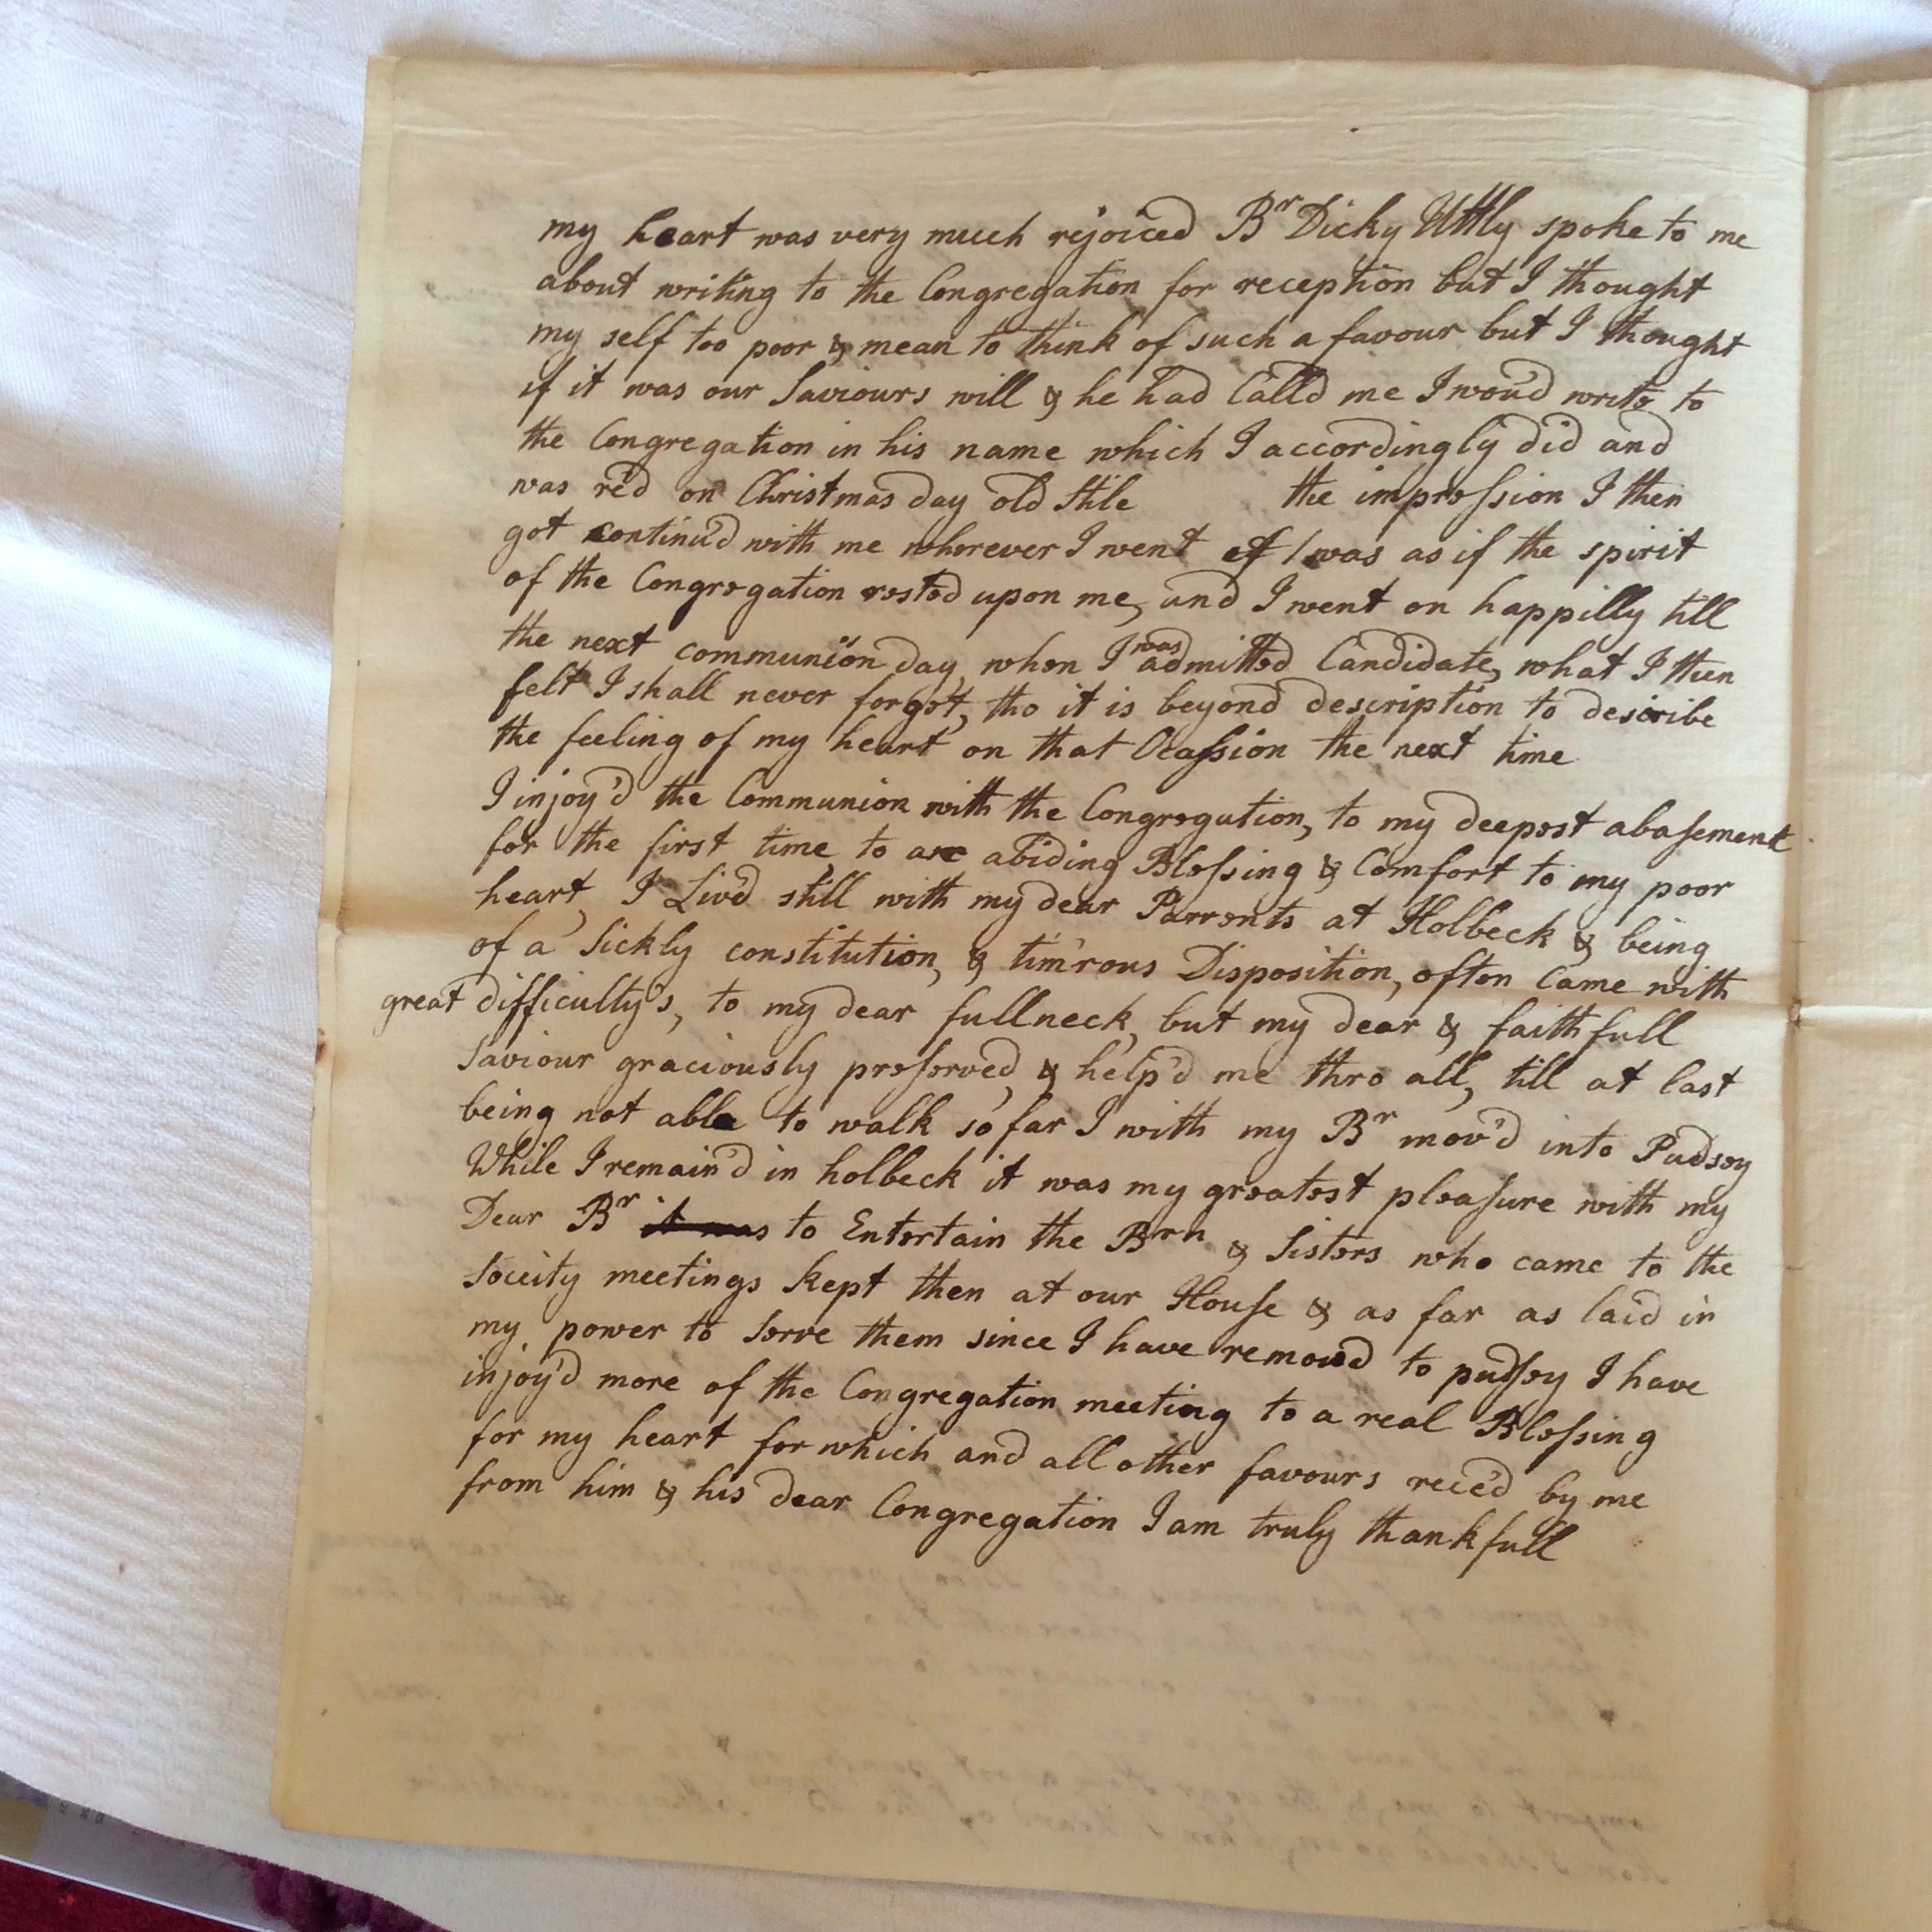 my heart was very much rejoiced Br Dicky Uttly spoke to me
about writing to the Congregation for reception but I thought
my self too poor & mean to think of such a favour but I thought
if it was our Saviours will & he had Calld me I wou'd write to
the Congregation in his name which I accordingly did and
was re'd on Christmas day old Stile the impression I then
got continu'd with me wherever I went I was as if the spirit
of the Congregation rested upon me, and I went on happilly till
the next communion day, when I was admitted Candidate, what I then
felt I shall never forget, tho it is beyond description to describe
the feeling of my heart on that Ocassion the next time
I injoy'd the Communion with the Congregation, to my deepest abasement
for the first time to an abiding Blessing & Comfort to my poor
heart, I Liv'd still with my dear Parrents at Holbeck & being
of a Sickly constitution, & tim'rous Disposition, often Came with
great difficulty's, to my dear fullneck, but my dear & faithfull
Saviour graciously preserved, & help'd me thro all, till at last
being not able to walk so far I with my Br mov'd into Pudsey
While I remain'd in holbeck it was my greatest pleasure with my
Dear Br it was to Entertain the Brn & Sisters who came to the
Soceity meetings kept then at our House & as far as laid in
my power to Serve them since I have remoued to pudsey I have
injoy'd more of the Congregation meeting to a real Blessing
for my heart for which and all other favours rece'd by me
from him & his dear Congregation I am truly thankfull